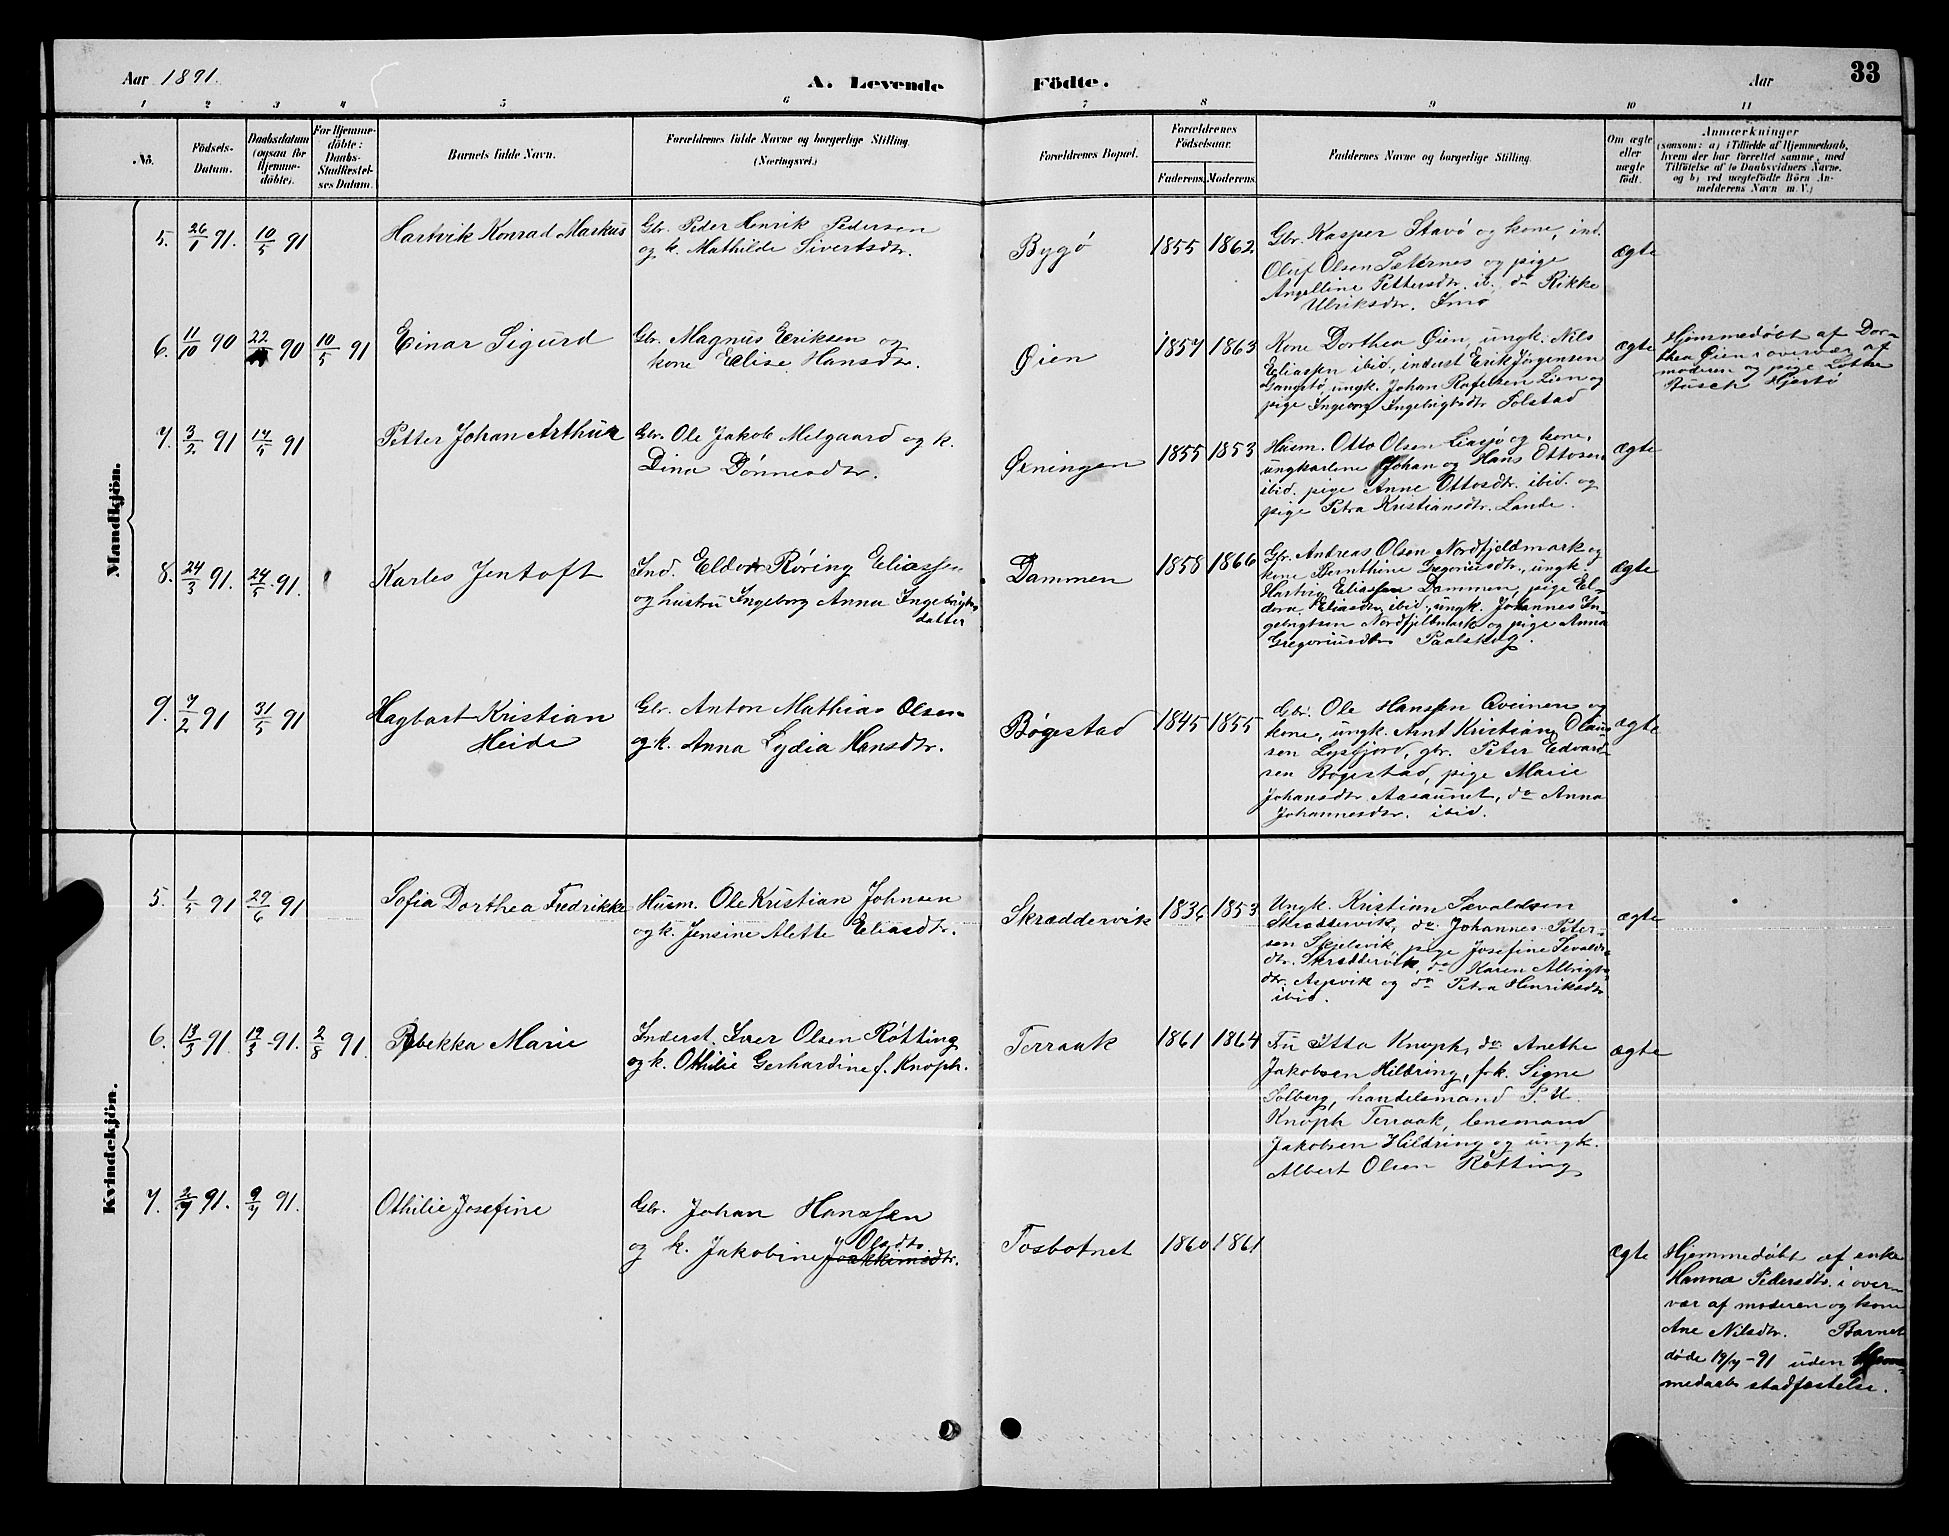 Aar 1891. A. Levende Födte. Aar 33
1 2 3 4 5 6 7 8 9 10 11
No.
Födsels-Datum.
Daabsdatum (ogsaa for Hjemme-döbte).
For Hjemme-döbte: Daabs-Stadfæstel-ses Datum.
Barnets fulde Navn.
Forældrenes fulde Navne og borgerlige Stilling. (Næringsvei.)
Forældrenes Bopæl.
Forældrenes Födselsaar.
Faderens. Moderens.
Faddernes Navne og borgerlige Stilling.
Om ægte eller uægte födt.
Anmærkninger
(saasom: a) i Tilfælde af Hjemmedaab,
hvem der har forrettet samme, med
Tilföielse af to Daabsvidners Navne,
og b) ved uægtefödte Börn An-
melderens Navn m. V.)
Mandkjön.
5. 26/1 91. 10/5 91 Hartvik Konrad Markus
Gbr. Peder Henrik Pedersen
og k. Mathilde Sivertsdtr.
Bygø 1855 1862
Gbr. Kasper Stavø og kone, ind.
Oluf Olsen Sæternes og pige
Angelline Pettersdtr. ib., do Rikke
Ulriksdtr.
ægte
6. 11/10 90 22/ 90 10/5 91 Einar Sigurd
Gbr. Magnus Eriksen og
kone Elise Hansdtr.
Øien 1857 1863
Kone Dorthea Øien, ungk. Nils
Eliassen ibid., inderst Erik Jørgensen
Gangstø, ungk. Johan Rafelsen Lien og
pige Ingeborg Ingebrigtsdtr Solstad
ægte
Hjemmedøbt af Dor-
thea Øien i overvær af
moderen og pige Lothe
Busch Hjortø
7. 3/2 91 14/5 91 Petter Johan Arthur
Gbr. Ole Jakob Melgaard og k.
Dina Dønnesdtr.
Øxningen 1855 1853
Husm. Otto Olsen Liasjø og kone,
ungkarlene Johan og Hans Ottosen
ibid. pige Anne Ottosdtr. ibid. og
pige Petra Kristiansdtr. Lande.
ægte
8. 24/3 91. 24/5 91. Karles Jentoft
Ind. Eldor Røring Eliassen
og hustru Ingeborg Anna Ingebrigts
datter
Dammen 1858 1866
Gbr. Andreas Olsen Nordfjeldmark og
kone Bernthine Gregoriusdtr., ungk.
Hartvig Eliassen Dammen, pige El-
dora Eliasdtr ibid., ungk. Johannes In-
gebrigtsen Nordfjeldmark og pige Anna
Gregoriusdtr Paalskog.
ægte
9. 7/2 91 31/5 91 Hagbart Kristian
Heide
Gbr. Anton Mathias Olsen
og k. Anna Lydia Hansdtr.
Bøgestad 1845 1855
Gbr. Ole Hanssen Qveinen og
kone, ungk. Arnt Kristian Olaus
sen Lysfjord, gbr. Peter Edvard-
sen Bøgestad, pige Marie
Johansdtr Aasaunet, do Anna
Johannesdtr. ibid.
ægte
Kvindekjön.
5. 1/5 91 29/6 91 Sofia Dorthea Fredrikke
Husm. Ole Kristian Johnsen
og k. Jensine Alette Eliasdtr.
Skræddervik 1836 1853
Ungk. Kristian Sevaldsen
Skræddervik, do. Johannes Peter-
sen Skjelsvik, pige Josefine Sevalds-
dtr. Skræddervik, do Karen Albrigts-
dtr. Aspvik og do Petra Henriksdtr
ibid.
ægte
6. 13/3 91. 19/3 91. 2/8 91. Rebekka Marie
Inderst Iver Olsen Røtting
og k. Othilie Gerhardine f. Knoph.
Terraak 1861 1864
Fru Itta Knoph, do Anethe
Jakobsen Hildring, frk. Signe
Solberg, handelsmand P. U.
Knoph Terraak, lensmand
Jakobsen Hildring og ungk.
Albert Olsen Røtting
ægte
7. 2/7 91. 9/7 91. Othilie Josefine
Gbr. Johan Hanssen
Olsdtr
og k. Jakobine Joakkimsdtr.
Tosbotnet 1860 1861
ægte
Hjemmedøbt af enke
Hanna Pedersdtr. i over-
vær af moderen og kone
Ane Nilsdtr. Barnet
døde 19/7-91 uden Hjem-
medaabs stadfæstelse.